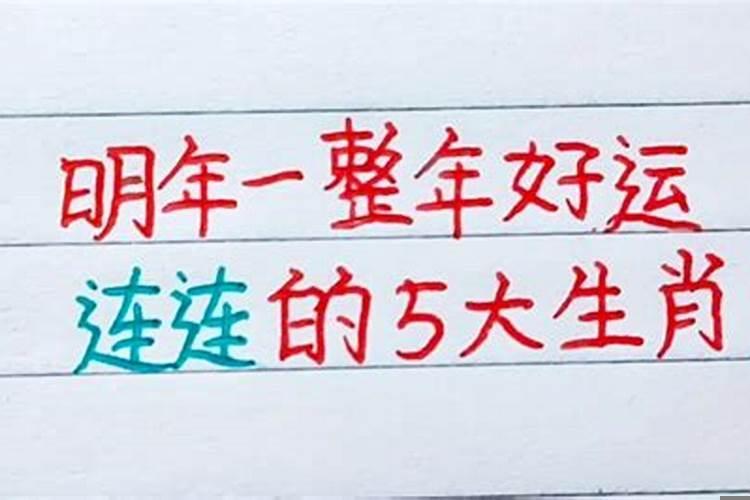 明年一整年好运
连连的5大生肖